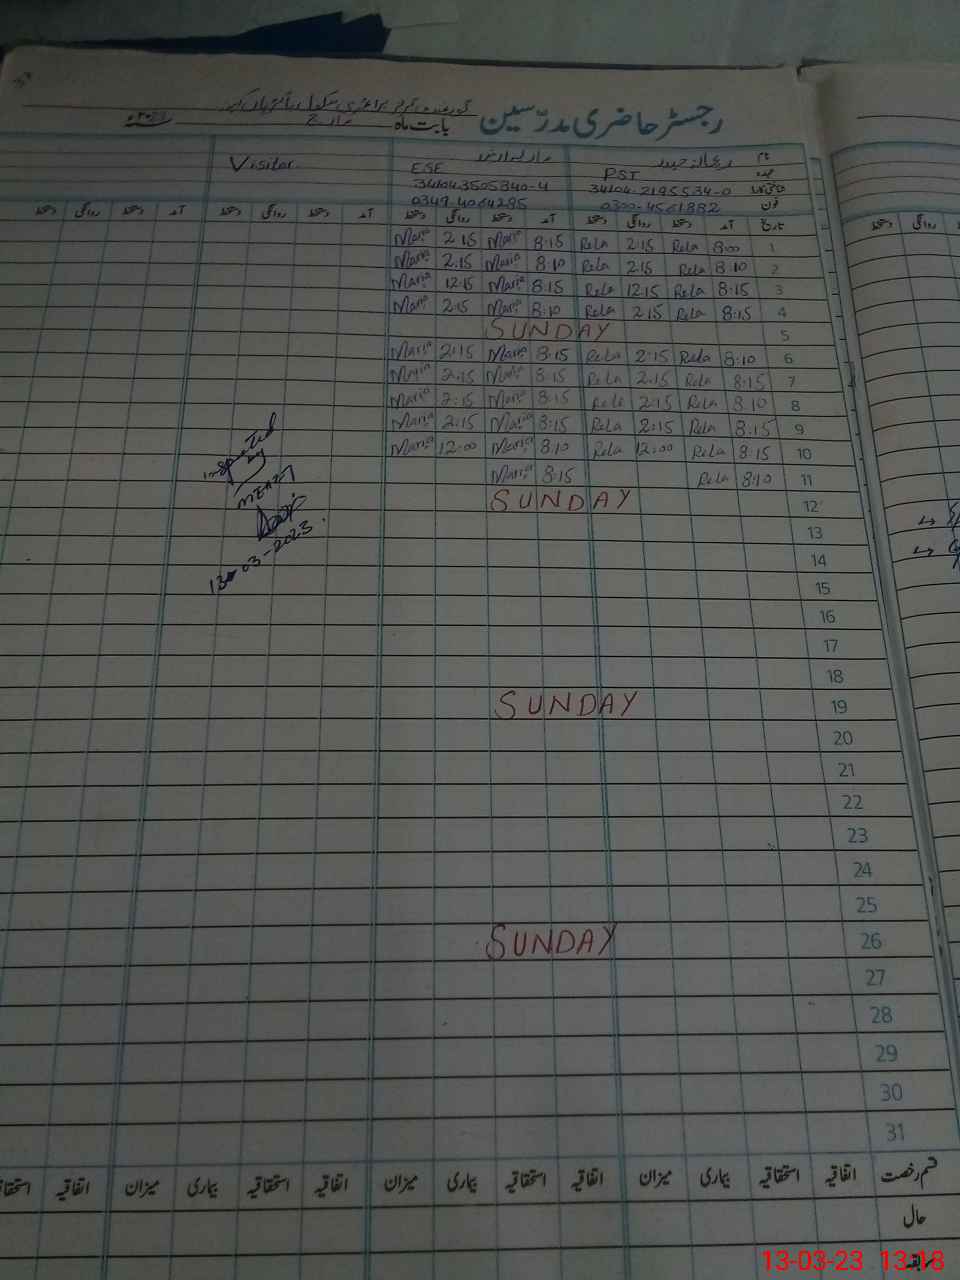 رجسٹر حاضری مدرّسین
بابت ماہ مارچ
نام
PST ESE Visitor
34104-2195534-0 341043505340-4
فون 0300-4561882 0349-4064295
تاریخ آمد دستخط روانگی دستخط آمد دستخط روانگی دستخط آمد دستخط روانگی دستخط آمد دستخط روانگی دستخط
1 8:00 Rela 2:15 Rela 8:15 Maria 2:15 Maria
2 8:10 Rela 2:15 Rela 8:10 Maria 2:15 Maria
3 8:15 Rela 12:15 Rela 8:15 Maria 12:15 Maria
4 8:15 Rela 2:15 Rela 8:10 Maria 2:15 Maria
5 SUNDAY
6 8:10 Rela 2:15 Rela 8:15 Maria 2:15 Maria
7 8:15 Rela 2:15 Rela 8:15 Maria 2:15 Maria
8 8:10 Rela 2:15 Rela 8:15 Maria 2:15 Maria
9 8:15 Rela 2:15 Rela 8:15 Maria 2:15 Maria
10 8:15 Rela 12:00 Rela 8:10 Maria 12:00 Maria
11 8:10 Rela 8:15 Maria
12 SUNDAY
13
14
15
16
17
18
19 SUNDAY
20
21
22
23
24
25
26 SUNDAY
27
28
29
30
31
inspected
by
13-03-2023
قسم رخصت اتفاقیہ استحقاقیہ بیماری میزان اتفاقیہ استحقاقیہ بیماری میزان اتفاقیہ استحقاقیہ بیماری میزان اتفاقیہ
حال
13-03-23 13:18